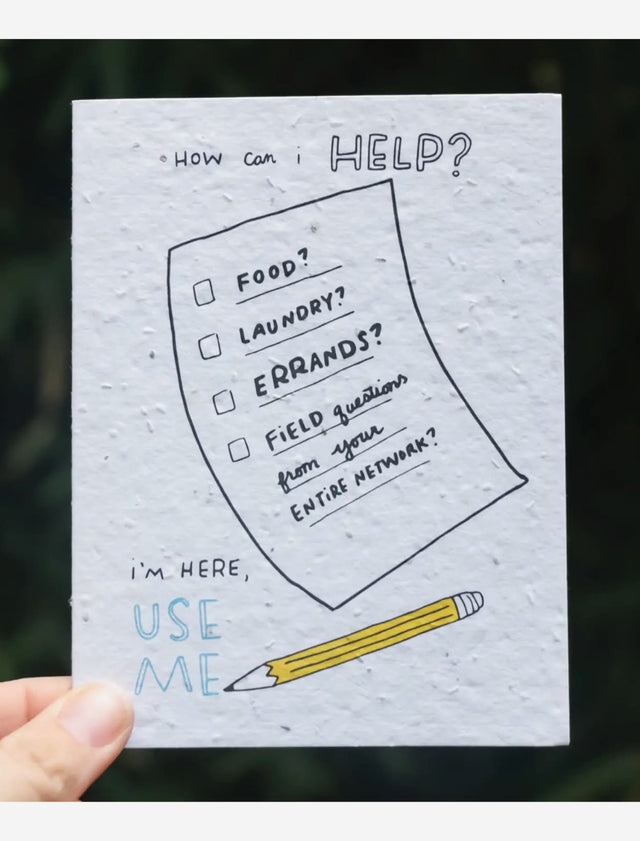 HOW can i HELP?
FOOD?
LAUNDRY?
ERRANDS?
FiELD questions
from your
ENTiRE NETWORK?
i'M HERE,
USE
ME